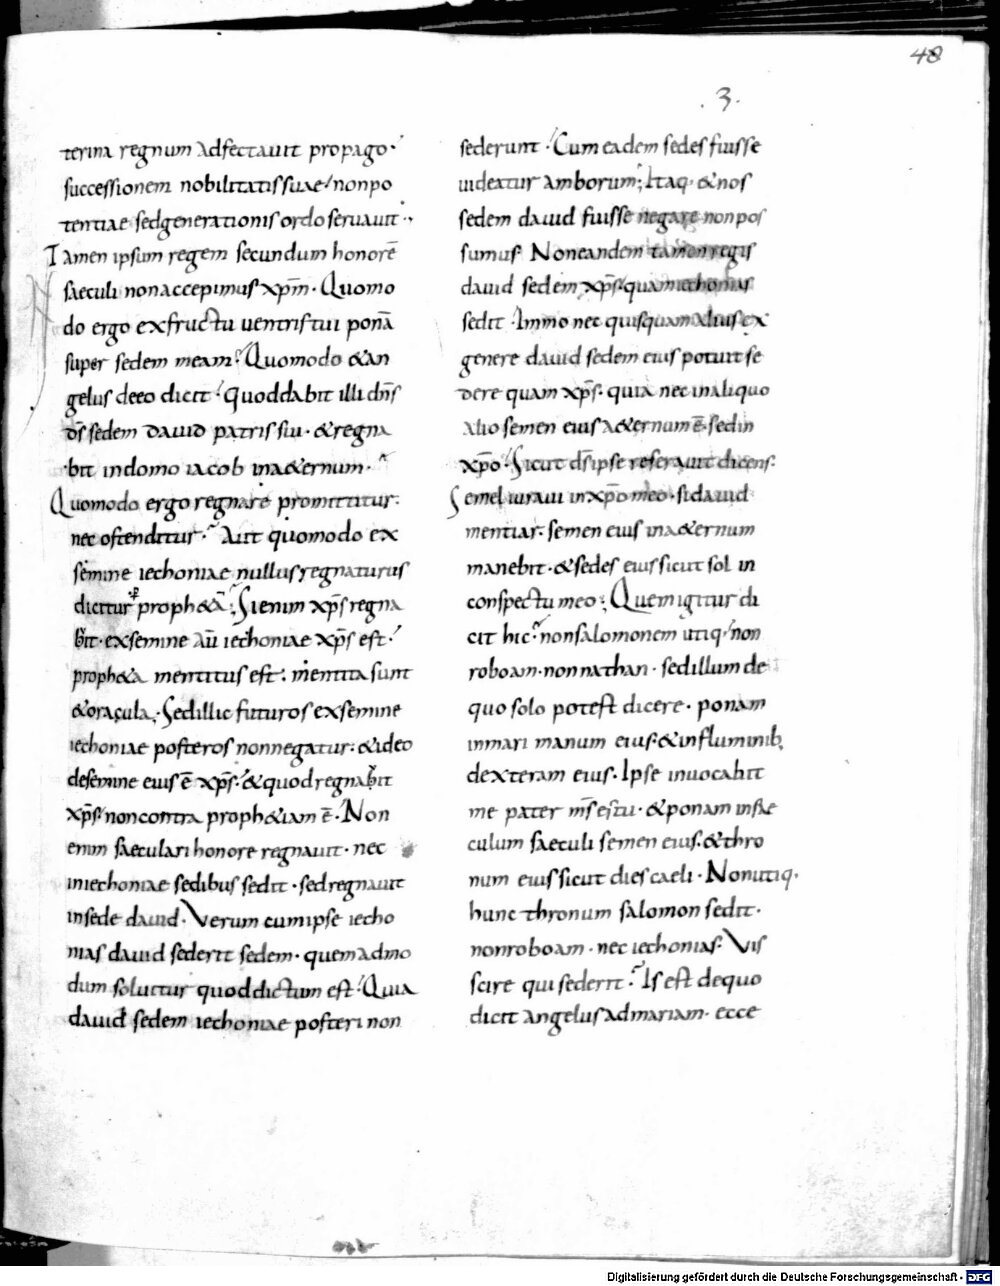 48
.3.
terina regnum adfectauit propago.
successionem nobilitatis suae / non po
tentiae sed generationis ordo seruauit.,
Tamen ipsum regem secundum honorē
saeculi non accepimus xp̄m. Quomo
do ergo ex fructu uentris tui ponā
super sedem meam? Quomodo & an
gelus de eo dicit / quod dabit illi dn̄s
dȿ sedem dauid patris sui. & regna
bit in domo iacob in a&ernum.
Quomodo ergo regnare promittitur.
nec ostenditur. Aut quomodo ex
semine iechoniae nullus regnaturus
dicitur proph&ā; Si enim xp̄s regna
bit. ex semine aū iechoniae xp̄s est.
proph&a mentitus est. mentita sunt
& oracula. Sed illic futuros ex semine
iechoniae posteros non negatur. & ideo
de semine eius ē xp̄s. & quod regnabit
xp̄s / non contra proph&iam ē. Non
enim saeculari honore regnauit. nec
in iechoniae sedibus sedit. sed regnauit
in sede dauid. Verum cum ipse iecho
nias dauid sederit sedem. quemadmo
dum soluitur quod dictum est / Quia
dauid sedem iechoniae posteri non
sederunt. Cum eadem sedes fuisse
uideatur amborum; Itaq. & nos
sedem dauid fuisse negare non pos
sumus. Non eandem tamen regis
dauid sedem xp̄s quam iechonias
sedit. Immo nec quisquam alius ex
genere dauid sedem eius potuit se
dere quam xp̄s. quia nec in aliquo
alio semen eius a&ernum ē. sed in
xp̄o. Sicut dȿ ipse referauit dicens.
Semel iuraui in xp̄o meo. si dauid
mentiar. semen eius in a&ernum
manebit. & sedes eius sicut sol in
conspectu meo; Quem igitur di
cit hic? non salomonem utiq. / non
roboam. non nathan. sed illum de
quo solo potest dicere. ponam
in mari manum eius. & in fluminib;
dexteram eius. Ipse inuocabit
me pater m̄s es tu. & ponam in sae
culum saeculi semen eius. & thro
num eius sicut dies caeli. Non utiq.
hunc thronum salomon sedit.
non roboam. nec iechonias. Vis
scire qui sederit? Is est de quo
dicit angelus ad mariam. ecce
Digitalisierung gefördert durch die Deutsche Forschungsgemeinschaft - DFG